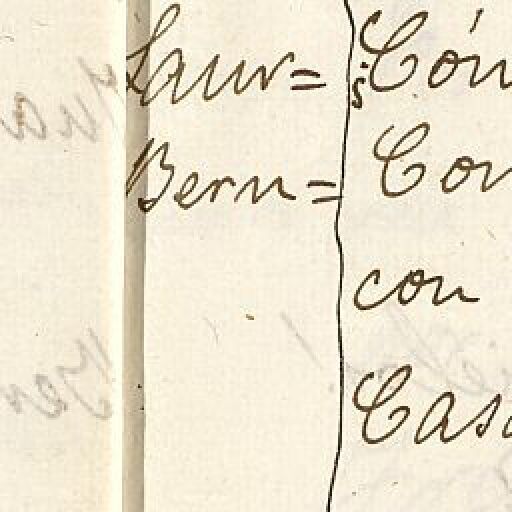 Laur= ¿Cón
Bern= Con
con
Casa